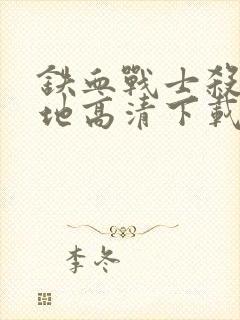 鐵血戰士殺
地高清下載
李冬